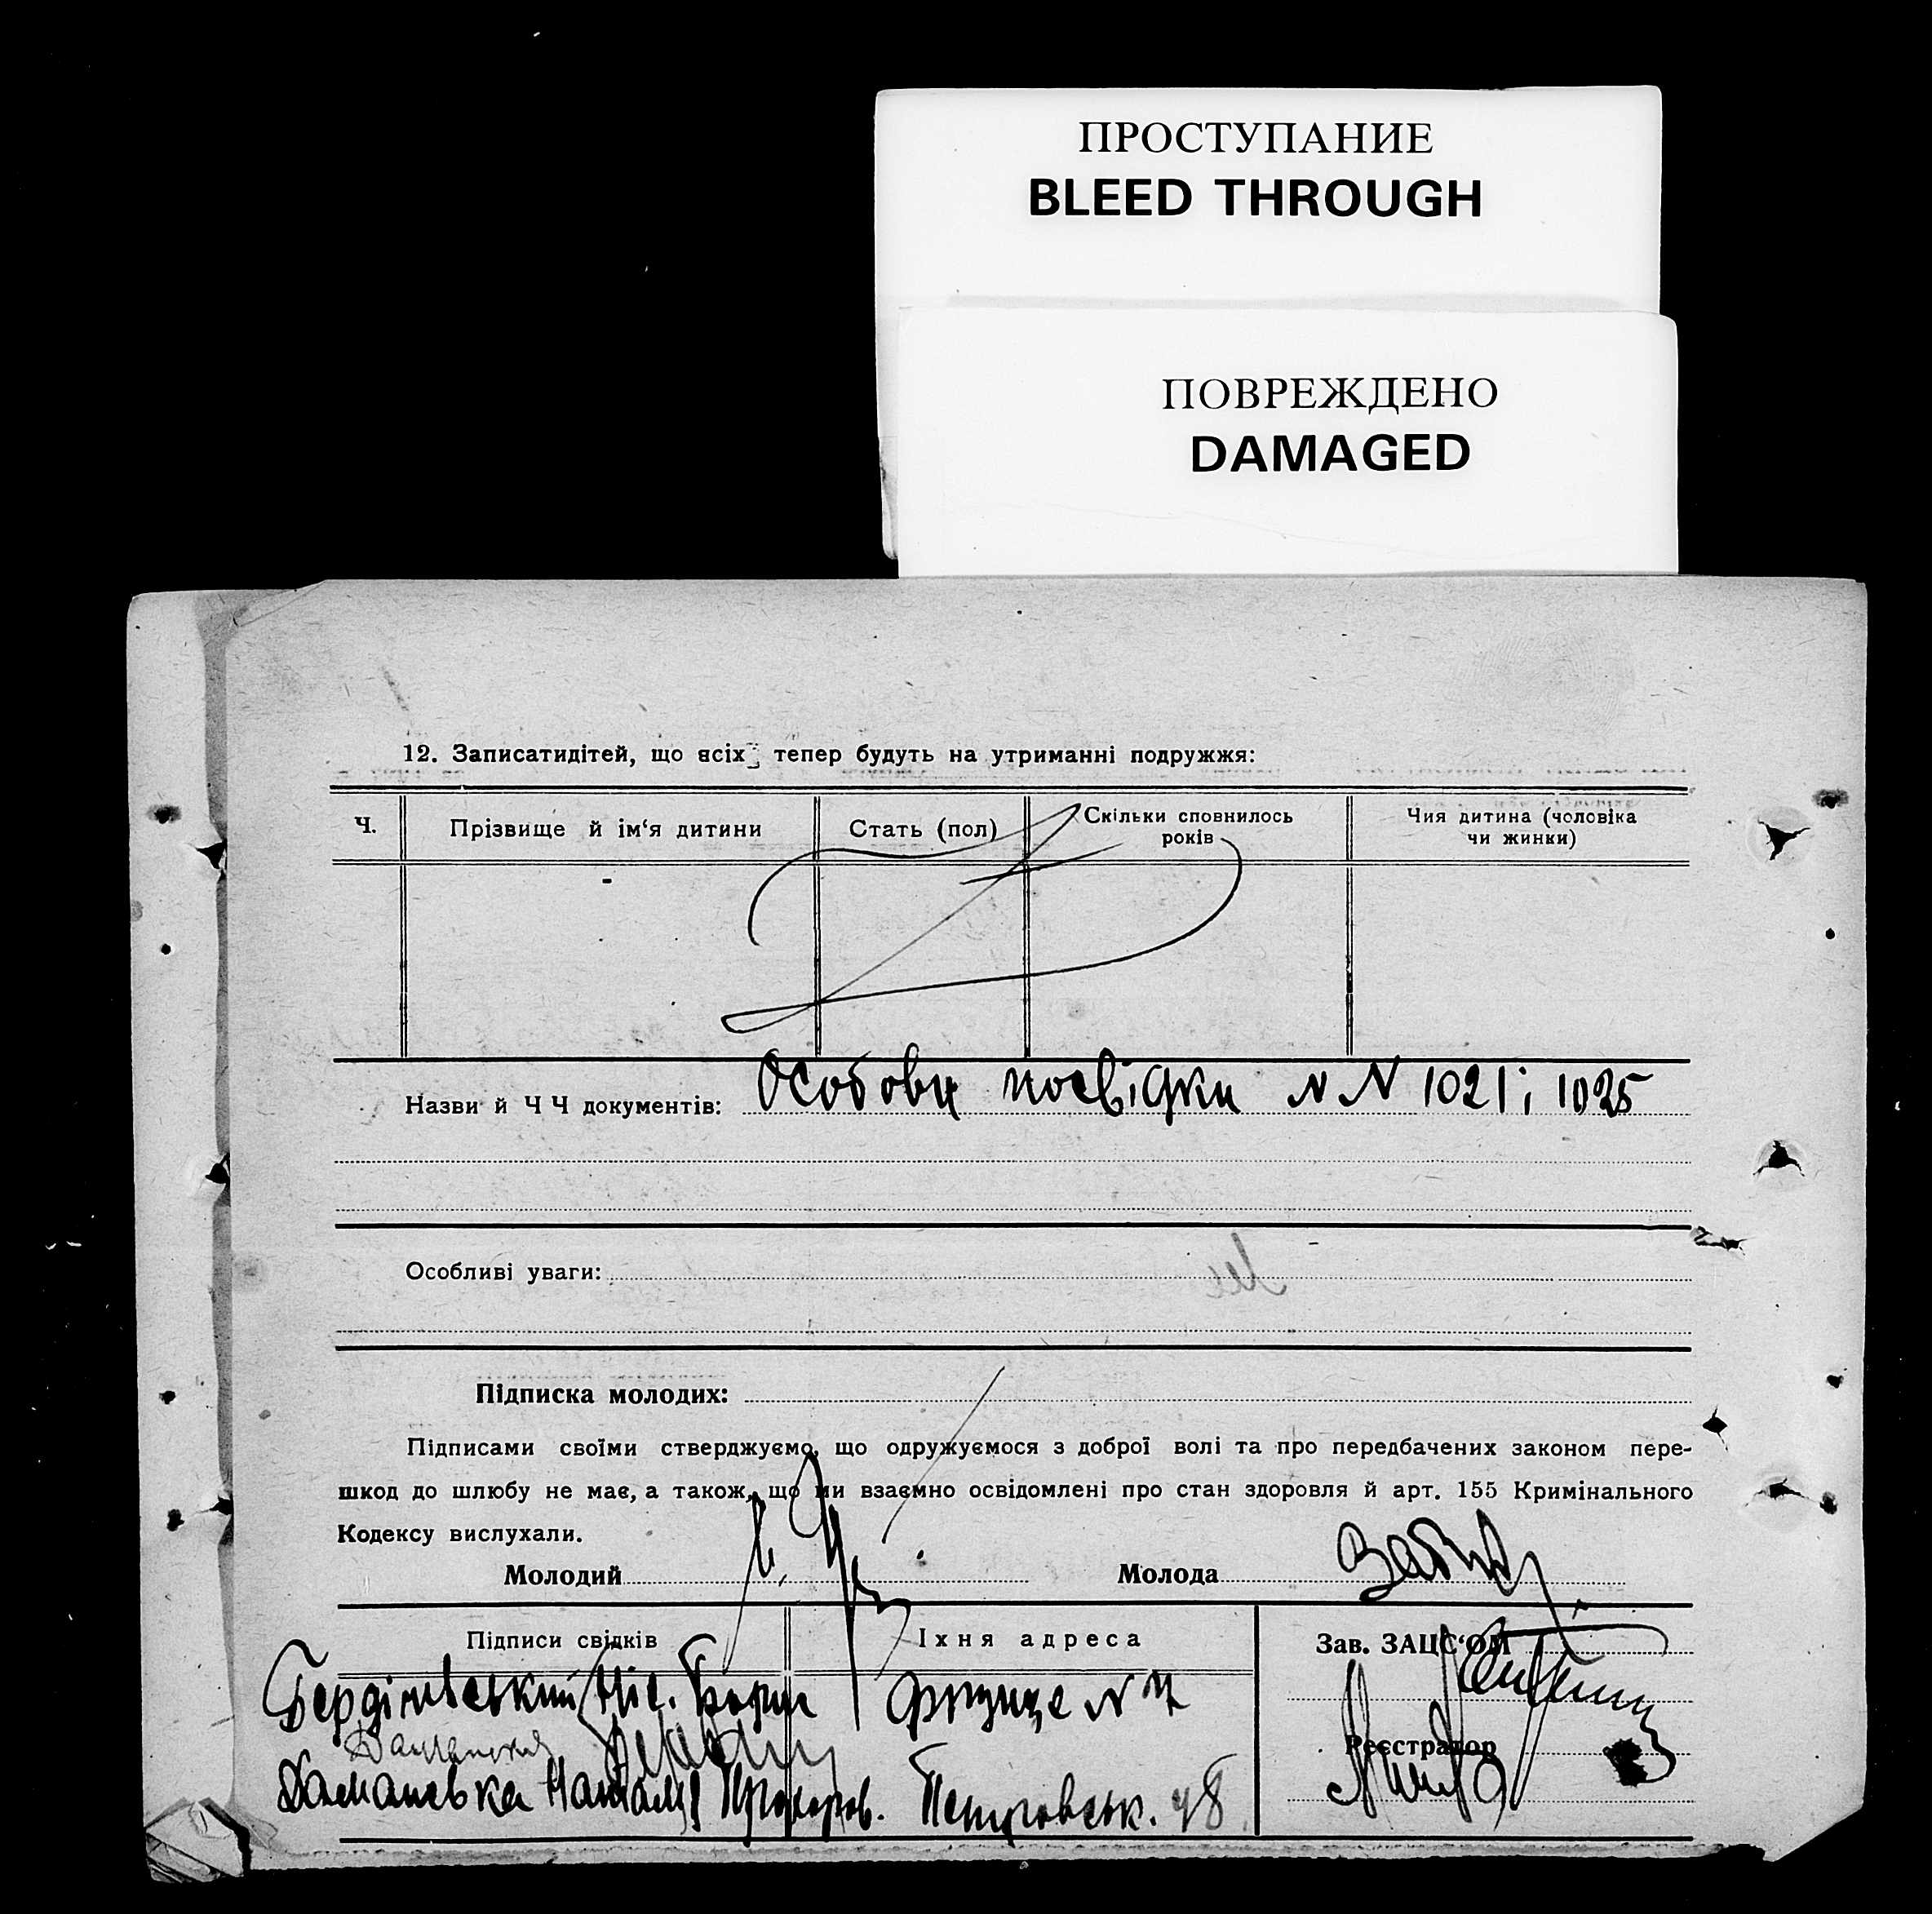 ПРОСТУПАНИЕ
BLEED THROUGH
ПОВРЕЖДЕНО
DAMAGED
12. Записатидітей, що всіх тепер будуть на утриманні подружжя:
Ч.
Прізвище й ім‘я дитини
Стать (пол)
Скільки сповнилось
років
Чия дитина (чоловіка
чи жинки)
Назви й Ч Ч документів: Особови посвідки N N 1021 і 1025
Особливі уваги:
Підписка молодих:
Підписами своїми стверджуємо, що одружуємося з доброї волі та про передбачених законом пере-
шкод до шлюбу не має, а також, що ми взаємно освідомлені про стан здоровля й арт. 155 Кримінального
Кодексу вислухали.
Молодий
Молода
Підписи свідків
Їхня адреса
Зав. ЗАЦС‘ОМ
Реєстратор